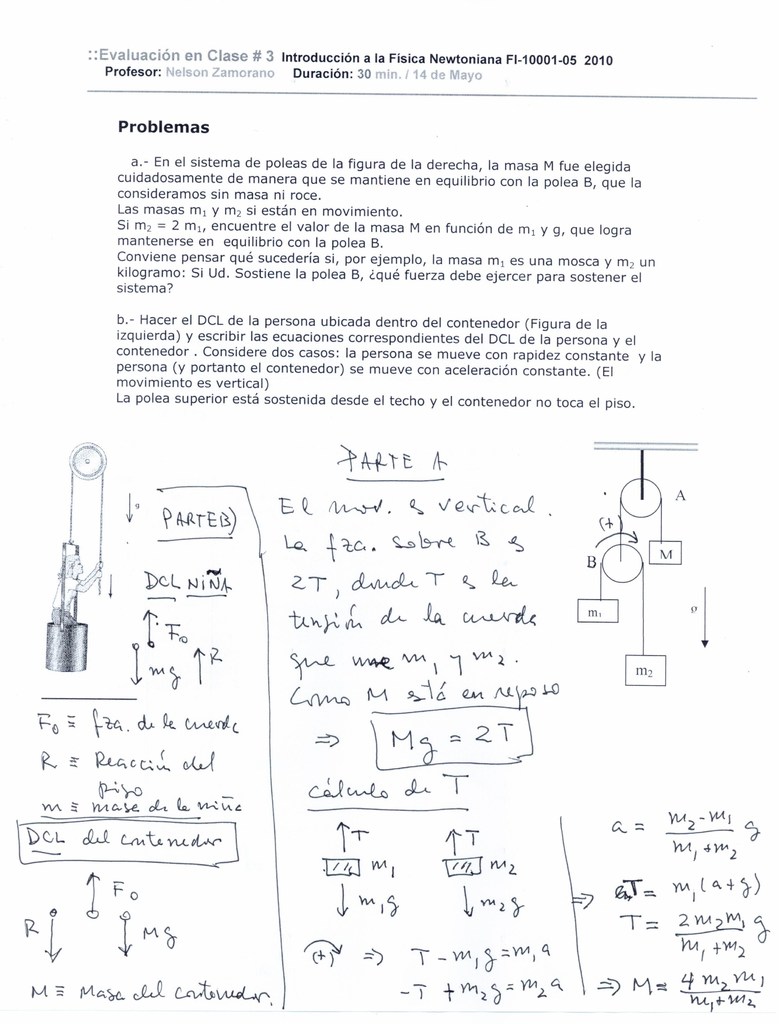 ::Evaluación en Clase # 3 Introducción a la Fisica Newtoniana FI-10001-05 2010
Profesor: Nelson Zamorano Duración: 30 min. / 14 de Mayo
Problemas
a.- En el sistema de poleas de la figura de la derecha, la masa M fue elegida
cuidadosamente de manera que se mantiene en equilibrio con la polea B, que la
consideramos sin masa ni roce.
Las masas m₁ y m₂ si están en movimiento.
Si m₂ = 2 m₁, encuentre el valor de la masa M en función de m₁ y g, que logra
mantenerse en equilibrio con la polea B.
Conviene pensar qué sucedería si, por ejemplo, la masa m₁ es una mosca y m₂ un
kilogramo: Si Ud. Sostiene la polea B, ¿qué fuerza debe ejercer para sostener el
sistema?
b.- Hacer el DCL de la persona ubicada dentro del contenedor (Figura de la
izquierda) y escribir las ecuaciones correspondientes del DCL de la persona y el
contenedor . Considere dos casos: la persona se mueve con rapidez constante y la
persona (y portanto el contenedor) se mueve con aceleración constante. (El
movimiento es vertical)
La polea superior está sostenida desde el techo y el contenedor no toca el piso.
g
PARTE B)
DCL NIÑA
F₀
mg
R
F₀ ≡ fza. de la cuerda
R ≡ Reacción del
piso
m ≡ masa de la niña
DCL del contenedor
F₀
R
Mg
M ≡ Masa del contenedor.
PARTE A
El mov. es vertical.
La fza. sobre B es
2T, donde T es la
tensión de la cuerda
que une m₁ y m₂.
Como M está en reposo
⇒ Mg = 2T
cálculo de T
T
m₁
m₁g
T
m₂
m₂g
(+) ⇒ T - m₁g = m₁a
-T + m₂g = m₂a
A
(+)
B
M
m₁
m₂
g
a = m₂-m₁/m₁+m₂ g
⇒ T = m₁(a+g)
T = 2m₂m₁/m₁+m₂ g
⇒ M = 4m₂m₁/m₁+m₂